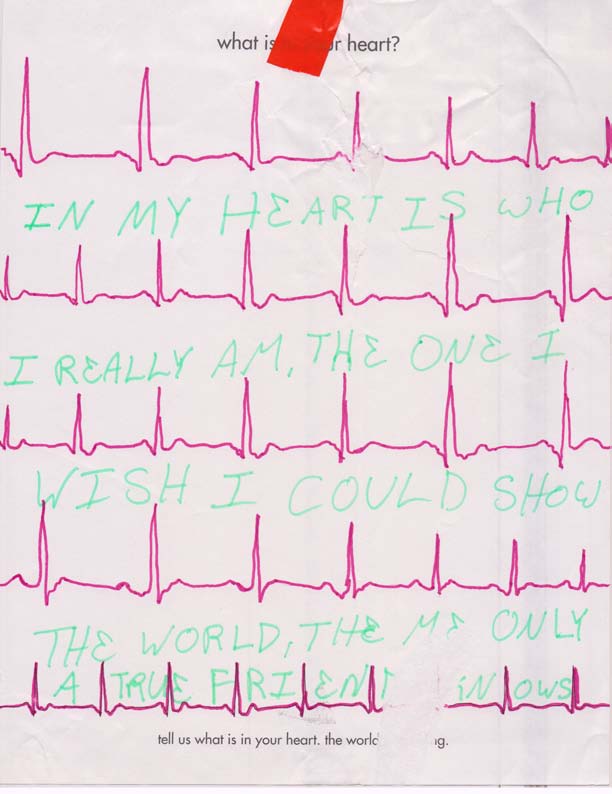 what is your heart?
IN MY HEART IS WHO
I REALLY AM, THE ONE I
WISH I COULD SHOW
THE WORLD, THE ME ONLY
A TRUE FRIEND KNOWS
tell us what is in your heart. the world